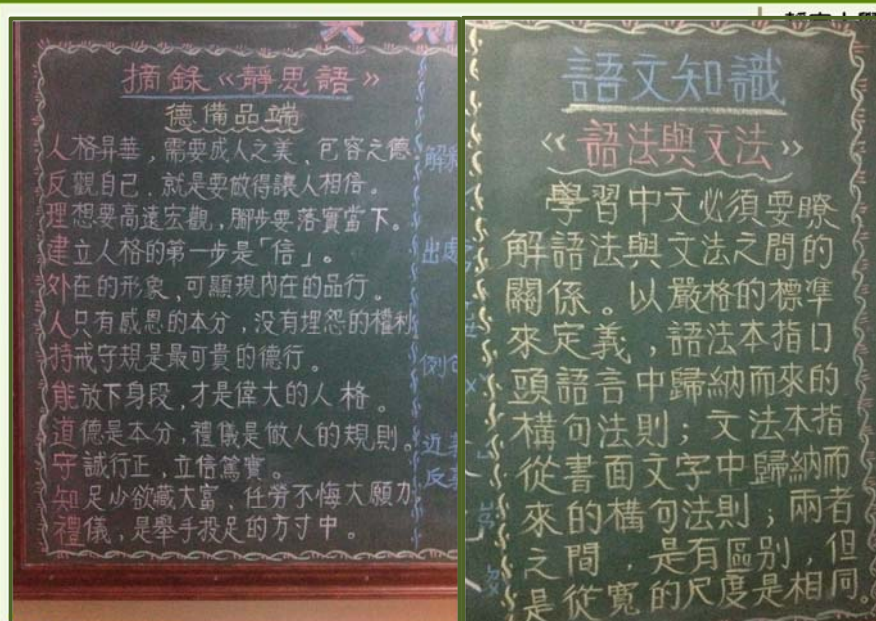 摘錄《靜思語》
德備品端
人格昇華，需要成人之美、包容之德。
反觀自己，就是要做得讓人相信。
理想要高遠宏觀，腳步要落實當下。
建立人格的第一步是「信」。
外在的形象，可顯現內在的品行。
人只有感恩的本分，沒有埋怨的權利
持戒守規是最可貴的德行。
能放下身段，才是偉大的人格。
道德是本分，禮儀是做人的規則。
守誠行正，立信篤實。
知足少欲藏大富、任勞不悔大願力
禮儀，是舉手投足的方寸中。
解釋
出處
例句
近義
反義
語文知識
《語法與文法》
學習中文必須要瞭
解語法與文法之間的
關係。以嚴格的標準
來定義，語法本指口
頭語言中歸納而來的
構句法則；文法本指
從書面文字中歸納而
來的構句法則；兩者
之間，是有區別，但
是從寬的尺度是相同。